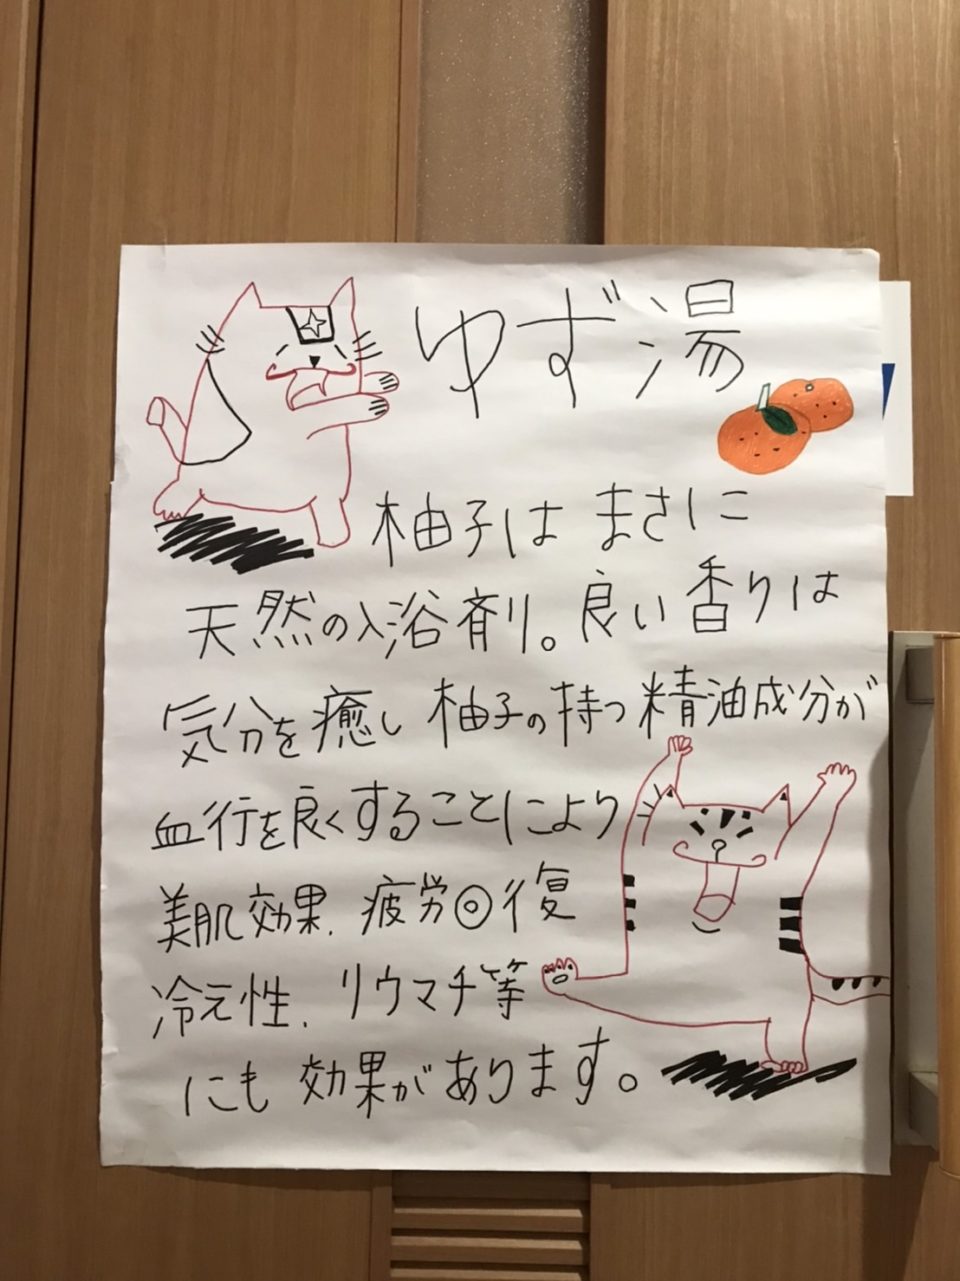 ゆず湯
柚子は まさに
天然の入浴剤。良い香りは
気分を癒し 柚子の持つ精油成分が
血行を良くすることにより
美肌効果、疲労回復
冷え性、リウマチ等
にも 効果があります。